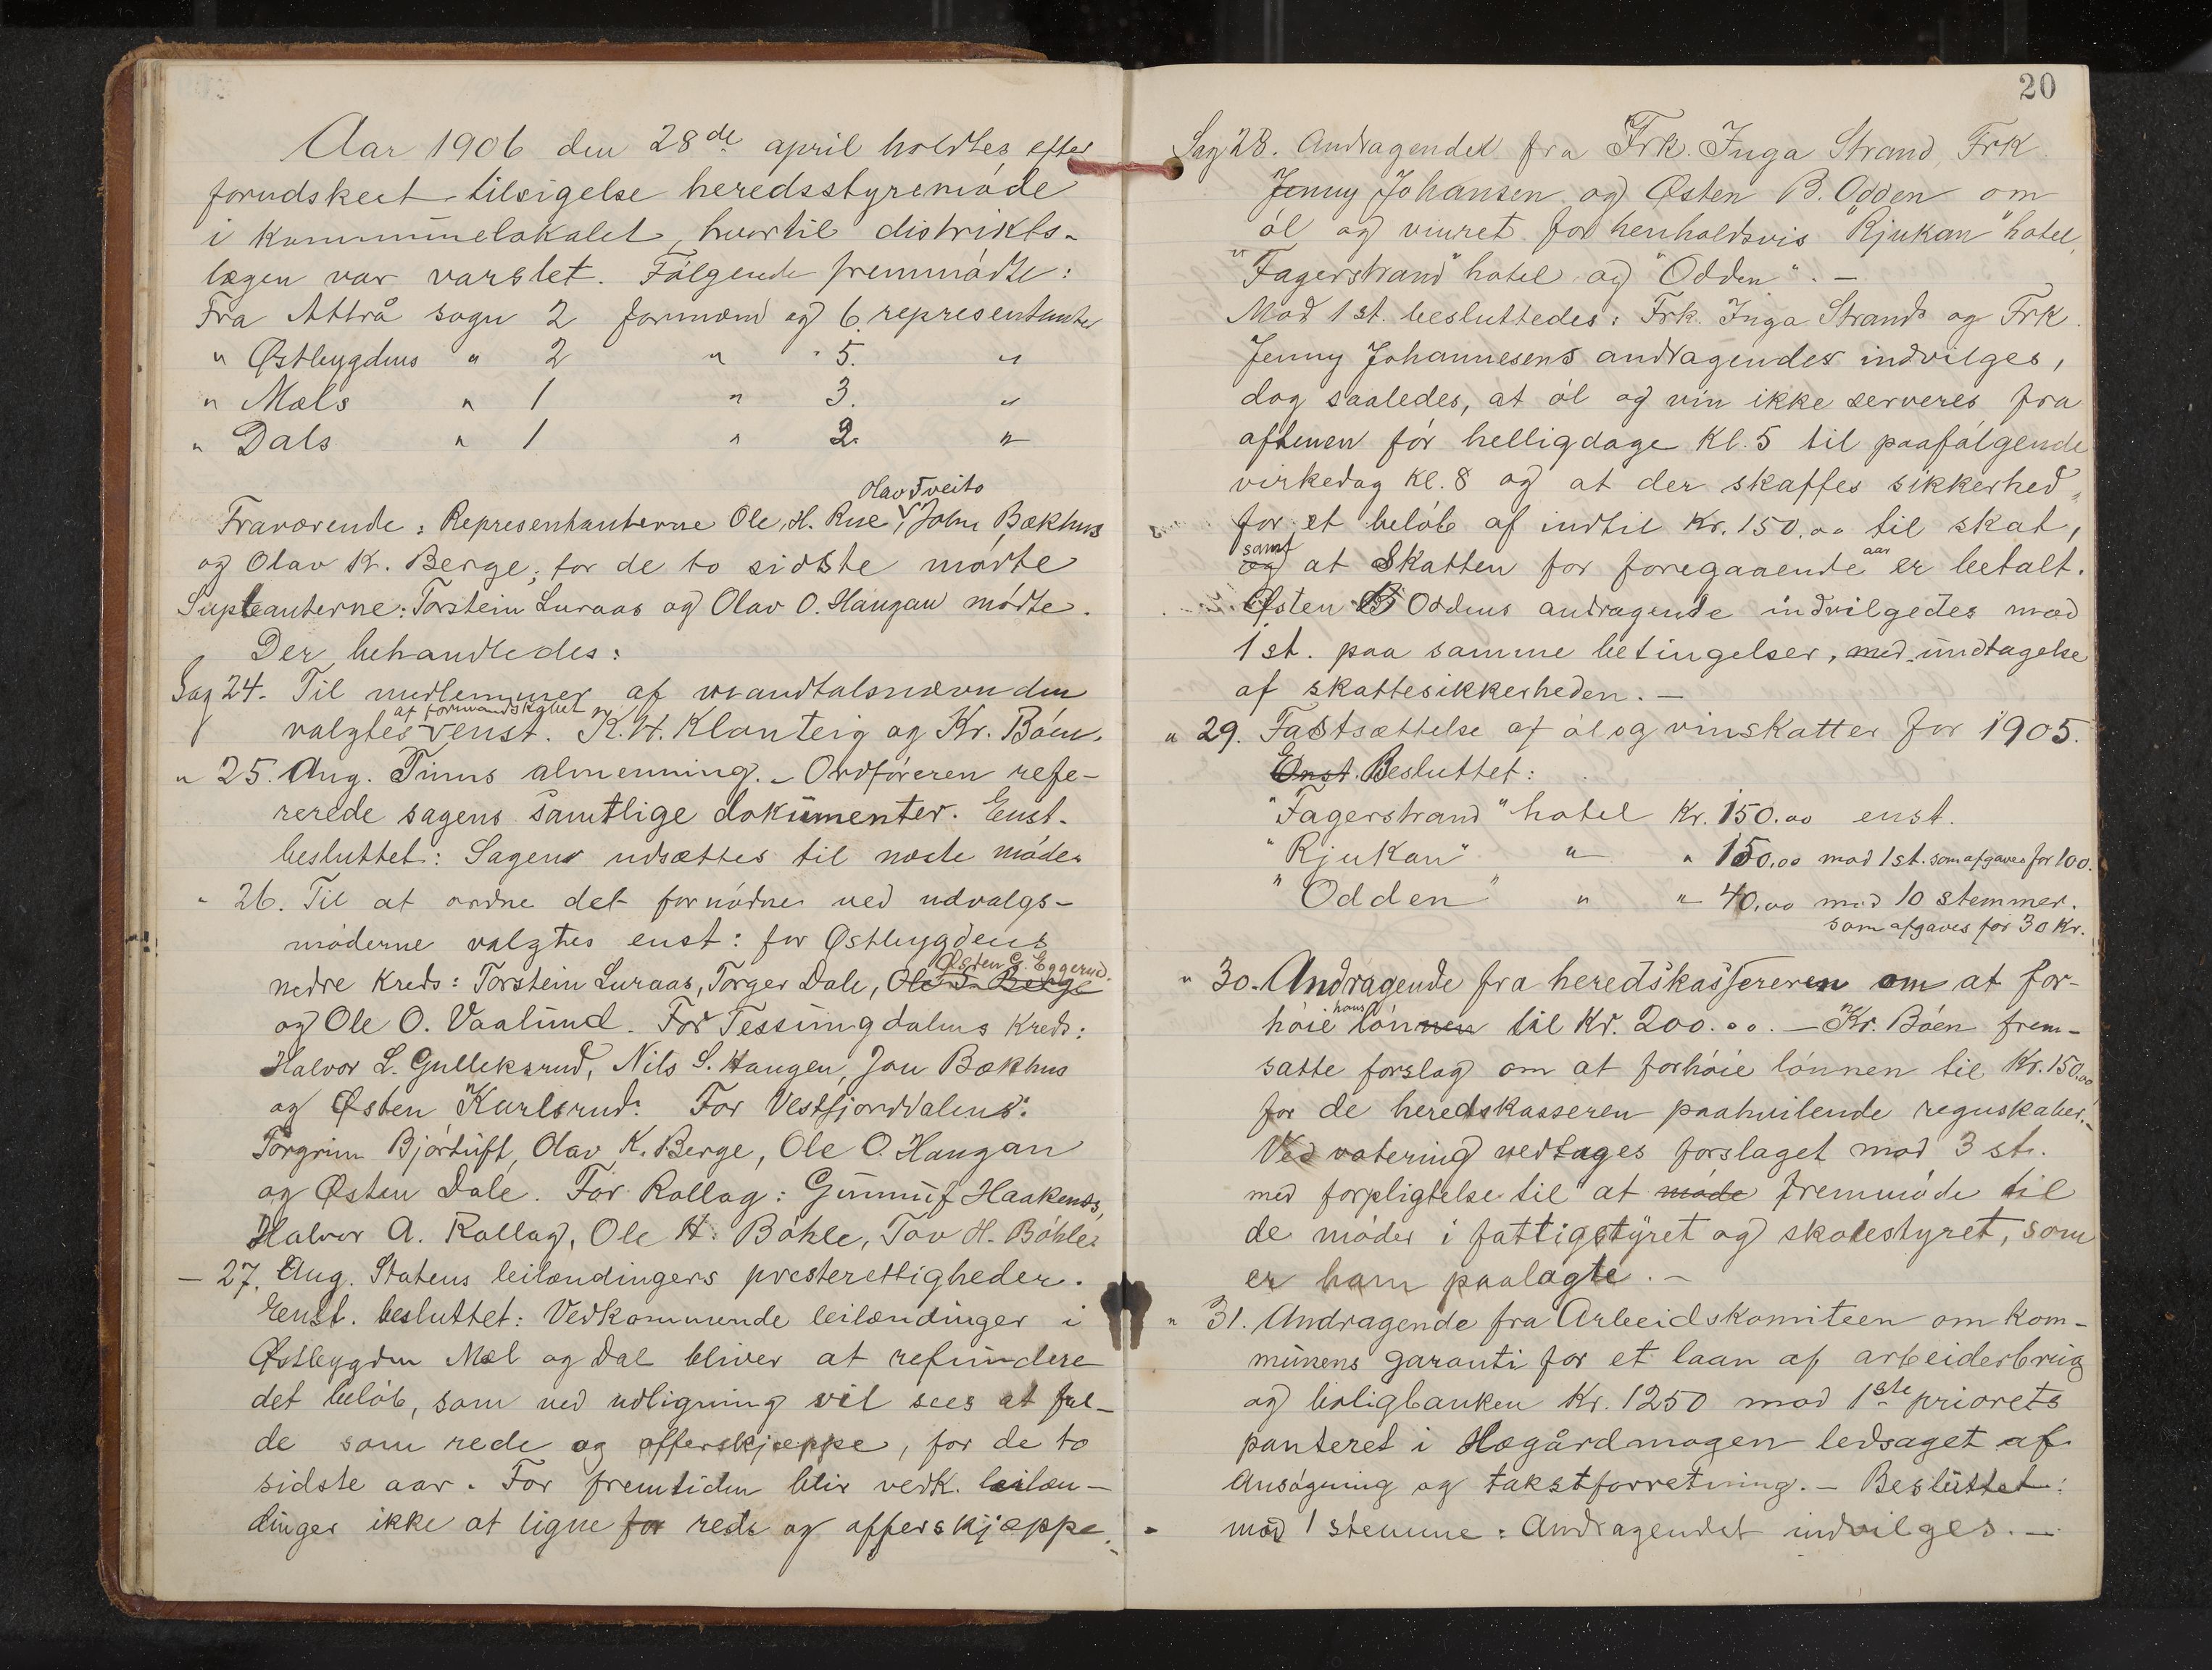 Aar 1906 den 28de april holdtes efter
forudskeet tilsigelse heredsstyremöde
i kommunelokalet, hvortil distrikts-
lægen var varslet. Fölgende fremmödte:
Fra Attrå sogn 2 formænd og 6 representanter
" Østbygdens " 2 " " 5. "
" Mæls " 1 " 3. "
" Dals " 1 " 2. "
Olav Tveito
Fraværende: Representanterne Ole H. Rue, John Bækhus
og Olav K. Berge; for de to sidste mödte
Supleanterne: Torstein Luraas og Olav O. Haugan mödte.
Der behandledes:
Sag 24. Til medlemmer af mandtalsnævnden
af formandskabet
valgtes enst. K. H. Klonteig og Kr. Böen.
" 25. Ang. Tinns almenning. - Ordföreren refe-
rerede sagens samtlige dokumenter. Enst.
besluttet: Sagen udsættes til næste möde.
" 26. Til at ordne det fornödne ved udvalgs-
möderne valgtes enst: for Østbygdens
Østen G. Eggerud
nedre Kreds: Torstein Luraas, Torger Dale, Ole T. Berge
og Ole O. Vaalund. For Tessungdalens Kreds:
Halvor L. Gulleksrud, Nils S. Haugen, Jon Bækhus
og Østen Karlsrud. For Vestfjorddalens:
Torgrim Björtuft, Olav K. Berge, Ole O. Haugan
og Østen Dale. For Rollag: Gunnuf Haakenæs,
Halvor A. Rollag, Ole H. Böhle, Tov H. Böhle.
- 27. Ang. Statens leilændingers presterettigheder.
Enst. besluttet: Vedkommende leilændinger i
Østbygden Mæl og Dal bliver at refundere
det belöb, som ved udligning vil sees at fal-
de som rede og offerskjæppe, for de to
sidste aar. For fremtiden blir vedk. leilæn-
dinger ikke at ligne for rede og offerskjæppe.
20
Sag 28. Andragendet fra Frk. Inga Strand, Frk
Jenny Johansen og Østen B. Odden om
öl og vinret for henholdsvis "Rjukan" hotel,
"Fagerstrand" hotel og "Odden". -
Mod 1 st. besluttedes: Frk. Inga Strands og Frk.
Jenny Johannesens andragender indvilges,
dog saaledes, at öl og vin ikke serveres fra
aftenen för helligdage Kl. 5 til paafölgende
virkedag Kl. 8 og at der skaffes sikkerhed
for et belöb af indtil Kr. 150.00 til skat,
samt aar
og at Skatten for foregaaende er betalt.
Østen B Oddens andragende indvilgedes mod
1 st. paa samme betingelser, med undtagelse
af skattesikkerheden. -
" 29. Fastsættelse af öl og vinskatter for 1905.
Enst. Besluttet:
"Fagerstrand" hotel Kr. 150.00 enst.
"Rjukan" " " 150,00 mod 1 st. som afgaves for 100.
"Odden" " " 40,00 mod 10 stemmer.
som afgaves for 30 Kr.
" 30. Andragende fra heredskassereren om at for-
hans
höie lönnen til Kr. 200.00. - Kr. Böen frem-
satte forslag om at forhöie lönnen til Kr. 150,00
for de heredskasseren paahvilende regnskaber.
Ved votering vedtages forslaget mod 3 st.
med forpligtelse til at möde fremmöde til
de möder i fattigstyret og skolestyret, som
er ham paalagte. -
" 31. Andragende fra Arbeidskomiteen om kom-
munens garanti for et laan af arbeiderbrug
og boligbanken Kr. 1250 mod 1ste priorets
panteret i Hægårdmogen ledsaget af
Ansögning og takstforretning. - Besluttet:
mod 1 stemme: Andragendet indvilges. -